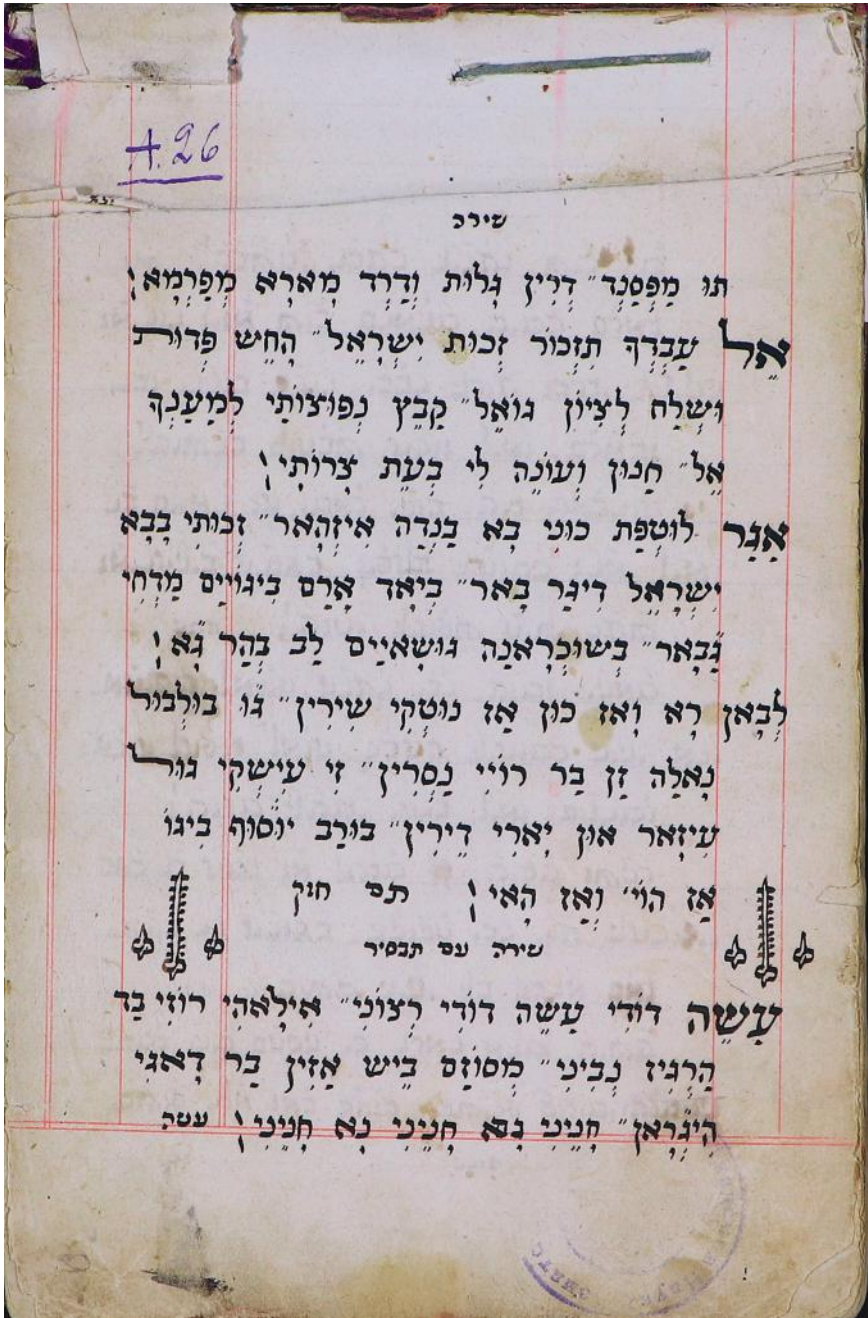 A. 26
שירה
תּוּ מַפְּסַנְד״ דְרִין גָלוּת וְדַרְד מָארָא מְפַרְמָא
אֵל עַבְדְךָ תִזְכּוֹר זְכוּת יִשְרָאֵל״ הָחֵיש פְּדוּת
וּשְלַח לְצִיוֹן גוֹאֵל״ קַבֵץ נְפוּצוֹתַי לְמַעַנְךָ
אֵל״ חַנוּן וְעוֹנֶה לִי בְעֵת צָרוֹתָי
אַגַר לוּטְפַת כּוּנִי בָא בַנְדַה אִיזְהָאר״ זְכוּתִי בָבָא
יִשְרָאֵל דִיגַר בָאר״ בְיָאד אָרַם בִיגוֹיַים מַדְחִי
גַבָאר״ בְשוּכְרָאנַה גוּשָאיַים לַב בְהַר גָא
לְבָאן רָא וָאז כּוּן אַז נוּטְקִי שִירִין״ גוּ בוּלְבוּל
נָאלַה זַן בַר רוֹיִי נַסְרִין״ זִי עִישְקִי גוּל
עִיזָאר אוּן יָארִי דֵירִין״ בוּרַב יוֹסוּף בִיגוֹ
אַז הוֹי׳ וְאַז הָאי תם חזק
שירה עם תפסיר
עַשֵה דוֹדִי עַשֵה דוֹדִי רְצוֹנִי״ אִילָאהִי רוֹזִי בַד
הַרְגִיז נְבִינִי״ מְסוֹזַם בֵיש אַזִין בַר דָאגִי
הִיגְרָאן״ חָנֵינִי נָא חָנֵינִי נָא חָנֵינִי עשה